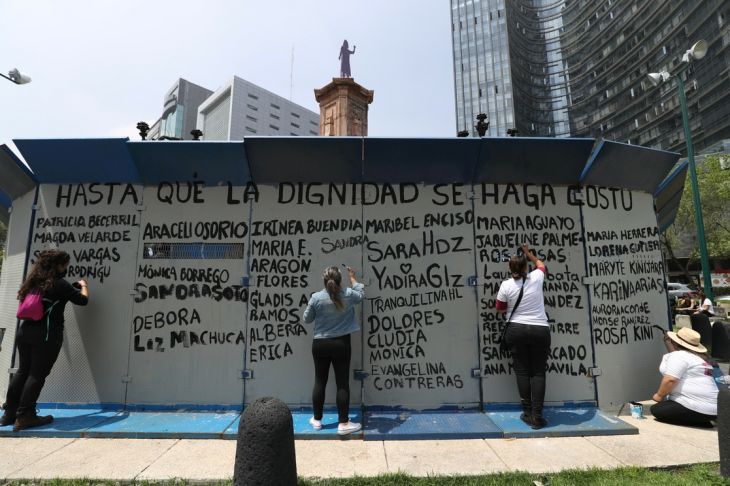 HASTA QUE LA DIGNIDAD SE HAGA COSTU
PATRICIA BECERRIL
MAGDA VELARDE
VARGAS
RODRÍGU
ARACELI OSORIO
MÓNICA BORREGO
SANDRA SOTO
DEBORA
LIZ MACHUCA
IRINEA BUENDIA
MARIA E.
SANDRA
ARAGON
FLORES
GLADIS
RAMOS
ALBER
ERICA
MARIBEL ENCISO
SARA HDZ
YADIRA GLZ
TRANQUILINA HL
DOLORES
CLUDIA
MONICA
EVANGELINA
CONTRERAS
MARIA AGUAYO
JAQUELINE PALME
MARIA HERRERA
LORENA GUTIER
MARYTE KINIJSKA
KARINA ARIAS
AURORA CONDE
MONSE RAMIREZ
ROSA KIN